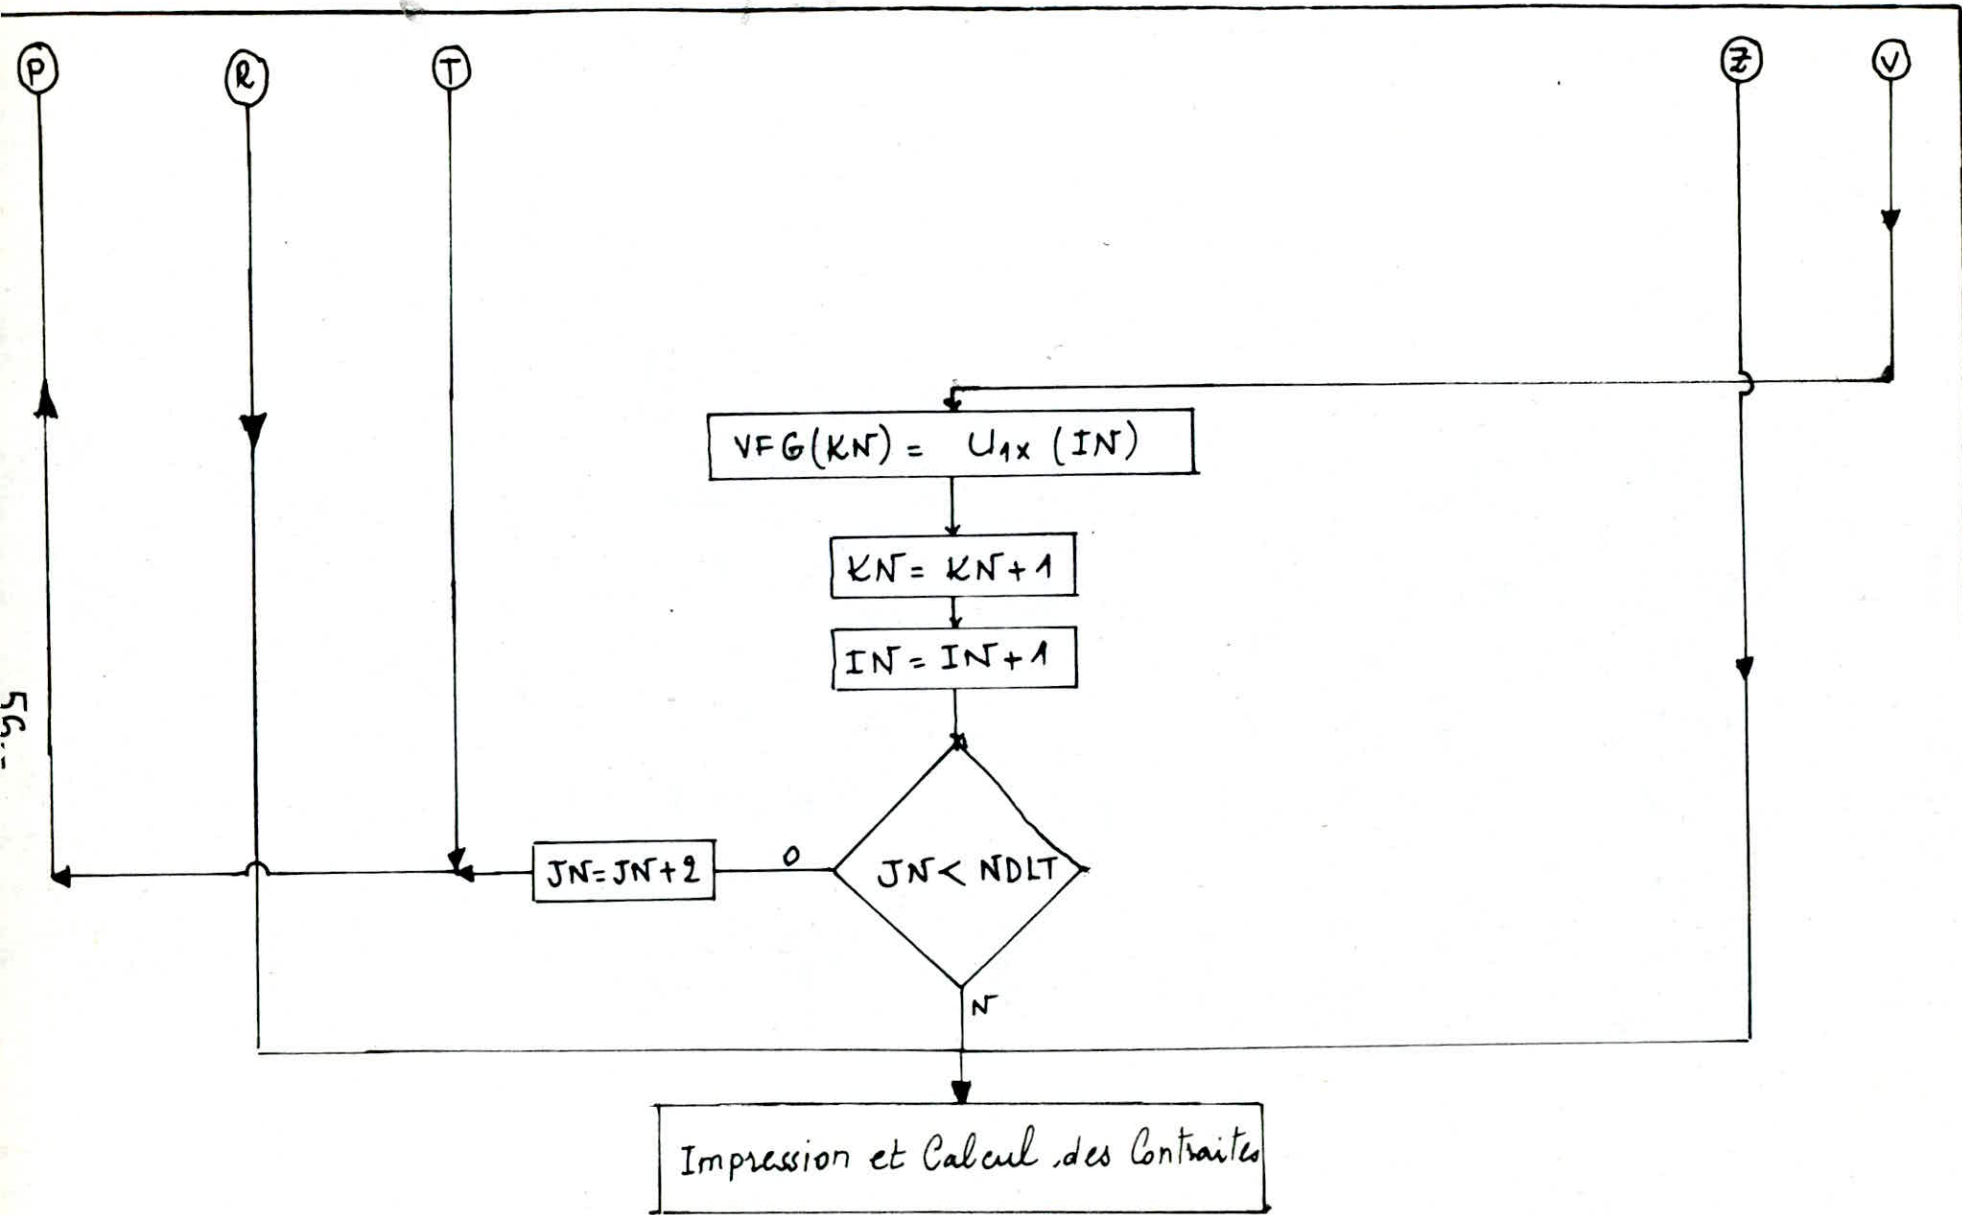 P
R
T
Z
V
VFG(KN) = U1x (IN)
KN = KN + 1
IN = IN + 1
JN < NDLT
O
JN = JN + 2
N
Impression et Calcul des Contraites